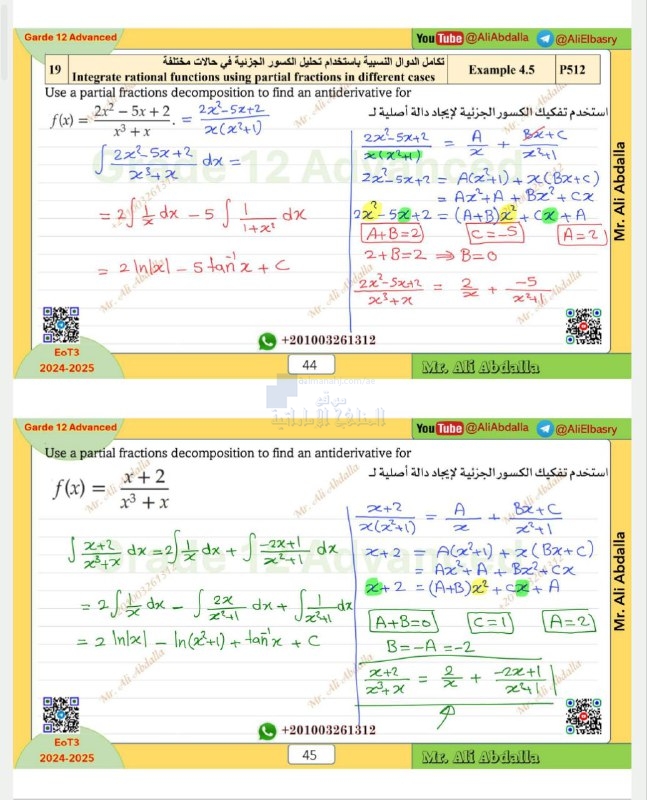 Garde 12 Advanced
You Tube @AliAbdalla @AliElbasry
19
تكامل الدوال النسبية باستخدام تحليل الكسور الجزئية في حالات مختلفة
Integrate rational functions using partial fractions in different cases
Example 4.5
P512
Use a partial fractions decomposition to find an antiderivative for
استخدم تفكيك الكسور الجزئية لإيجاد دالة أصلية لـ
f(x) = (2x² − 5x + 2)/(x³ + x) . = (2x²−5x+2)/(x(x²+1))
∫ (2x²−5x+2)/(x³+x) dx =
= 2∫ 1/x dx − 5 ∫ 1/(1+x²) dx
= 2 ln|x| − 5 tan⁻¹x + C
(2x²−5x+2)/(x(x²+1)) = A/x + (Bx+C)/(x²+1)
2x²−5x+2 = A(x²+1) + x(Bx+C)
= Ax²+A + Bx² + Cx
2x²−5x+2 = (A+B)x² + Cx + A
A+B=2 C=−5 A=2
2+B=2 ⇒ B=0
(2x²−5x+2)/(x³+x) = 2/x + −5/(x²+1)
Mr. Ali Abdalla
EoT3
2024-2025
+201003261312
44
Mr. Ali Abdalla
almanahj.com/ae
موقع
المناهج الإماراتية
Garde 12 Advanced
You Tube @AliAbdalla @AliElbasry
Use a partial fractions decomposition to find an antiderivative for
استخدم تفكيك الكسور الجزئية لإيجاد دالة أصلية لـ
f(x) = (x + 2)/(x³ + x)
∫ (x+2)/(x³+x) dx = 2∫ 1/x dx + ∫ (−2x+1)/(x²+1) dx
= 2∫ 1/x dx − ∫ 2x/(x²+1) dx + ∫ 1/(x²+1) dx
= 2 ln|x| − ln(x²+1) + tan⁻¹x + C
(x+2)/(x(x²+1)) = A/x + (Bx+C)/(x²+1)
x+2 = A(x²+1) + x(Bx+C)
= Ax²+A + Bx² + Cx
x+2 = (A+B)x² + Cx + A
A+B=0 C=1 A=2
B=−A =−2
(x+2)/(x³+x) = 2/x + (−2x+1)/(x²+1)
Mr. Ali Abdalla
EoT3
2024-2025
+201003261312
45
Mr. Ali Abdalla